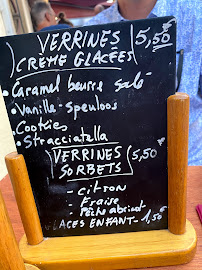 VERRINES 5,50
CRÈME GLACÉES
• Caramel beurre salé
• Vanille - Speculoos
• Cookies
• Stracciatella
VERRINES 5,50€
SORBETS
- citron
- Fraise
- Pêche abricot
GLACES ENFANT - 1,50€